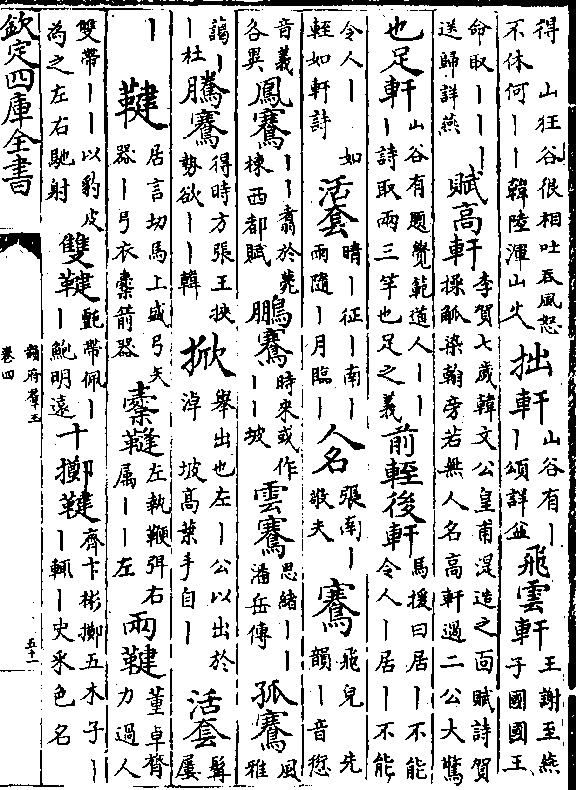 得　山狂谷很相吐吞風怒不休何丨丨韓陸渾山火拙軒山谷有丨丨頌詳盆飛雲軒王謝至燕子國國王
命取丨丨丨送歸詳燕賦高軒李賀七歲韓文公皇甫湜造之面賦詩賀操觚染翰旁若無人名高軒過二公大驚
也足軒山谷有題覺範道人丨丨丨詩取兩三竿也足之義前輊後軒馬援曰居丨不能令人丨居丨不能
令人丨　如輊如軒詩活套晴丨征丨南丨雨隨丨月臨丨人名張南丨敬夫騫飛皃　先韻丨音愆
音義各異鳳騫丨丨翥於甍棟西都賦鵬騫時來或作丨丨坡雲騫思緒丨丨潘岳傳孤騫風雅
藹丨丨杜騰騫得時方張王挾勢欲丨丨韓掀舉出也左丨公以出於淖　坡高葉手自丨活套髯屢
丨鞬居言切馬上盛弓矢器丨弓衣櫜箭器櫜鞬左執鞭弭右属丨丨左兩鞬董卓膂力過人
雙帶丨丨以豹皮為之左右馳射雙鞬氈帶佩丨丨鮑明遠十擲鞬齊卞彬擲五木子丨丨輒丨史釆色名
欽定四庫全書
韻府羣玉
卷四
五十一